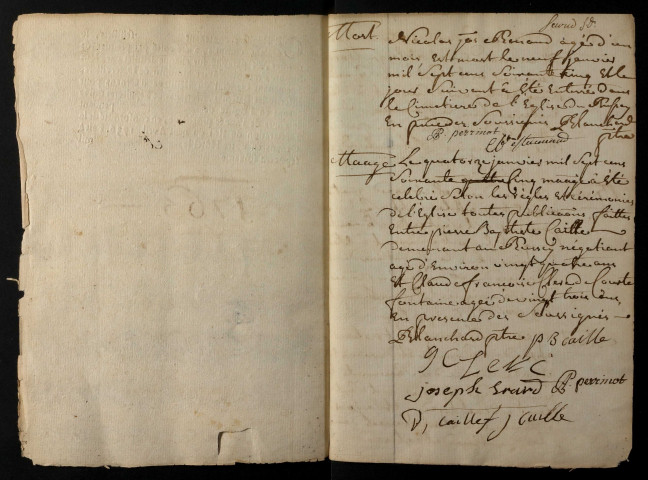 Mort
Nicolas jos Renaud agé d'un
mois est mort le neuf janvier
mil sept cens soixante cinq et le
jour suivant a été enterré dans
le Cimetiere de l'Eglise du Russey
En presence des soussignés Blanchard
ptre
P. perrinot
Mariage Le quatorze janvier mil sept cens
soixante quattre cinq mariage a été
celebré selon les regles et cérémonies
de l'Eglise toutes publications faittes
Entre pierre Baptiste Caille
demeurant au Russey négotiant
agé d'Environ vingt quatre ans
Et Claude francoise Clerc de Courte
fontaine agée de vingt trois ans
En presence des soussignés
Blanchard ptre p B caille
9 C Lerc
joseph Erard P. perrinot
caille j caille
1765